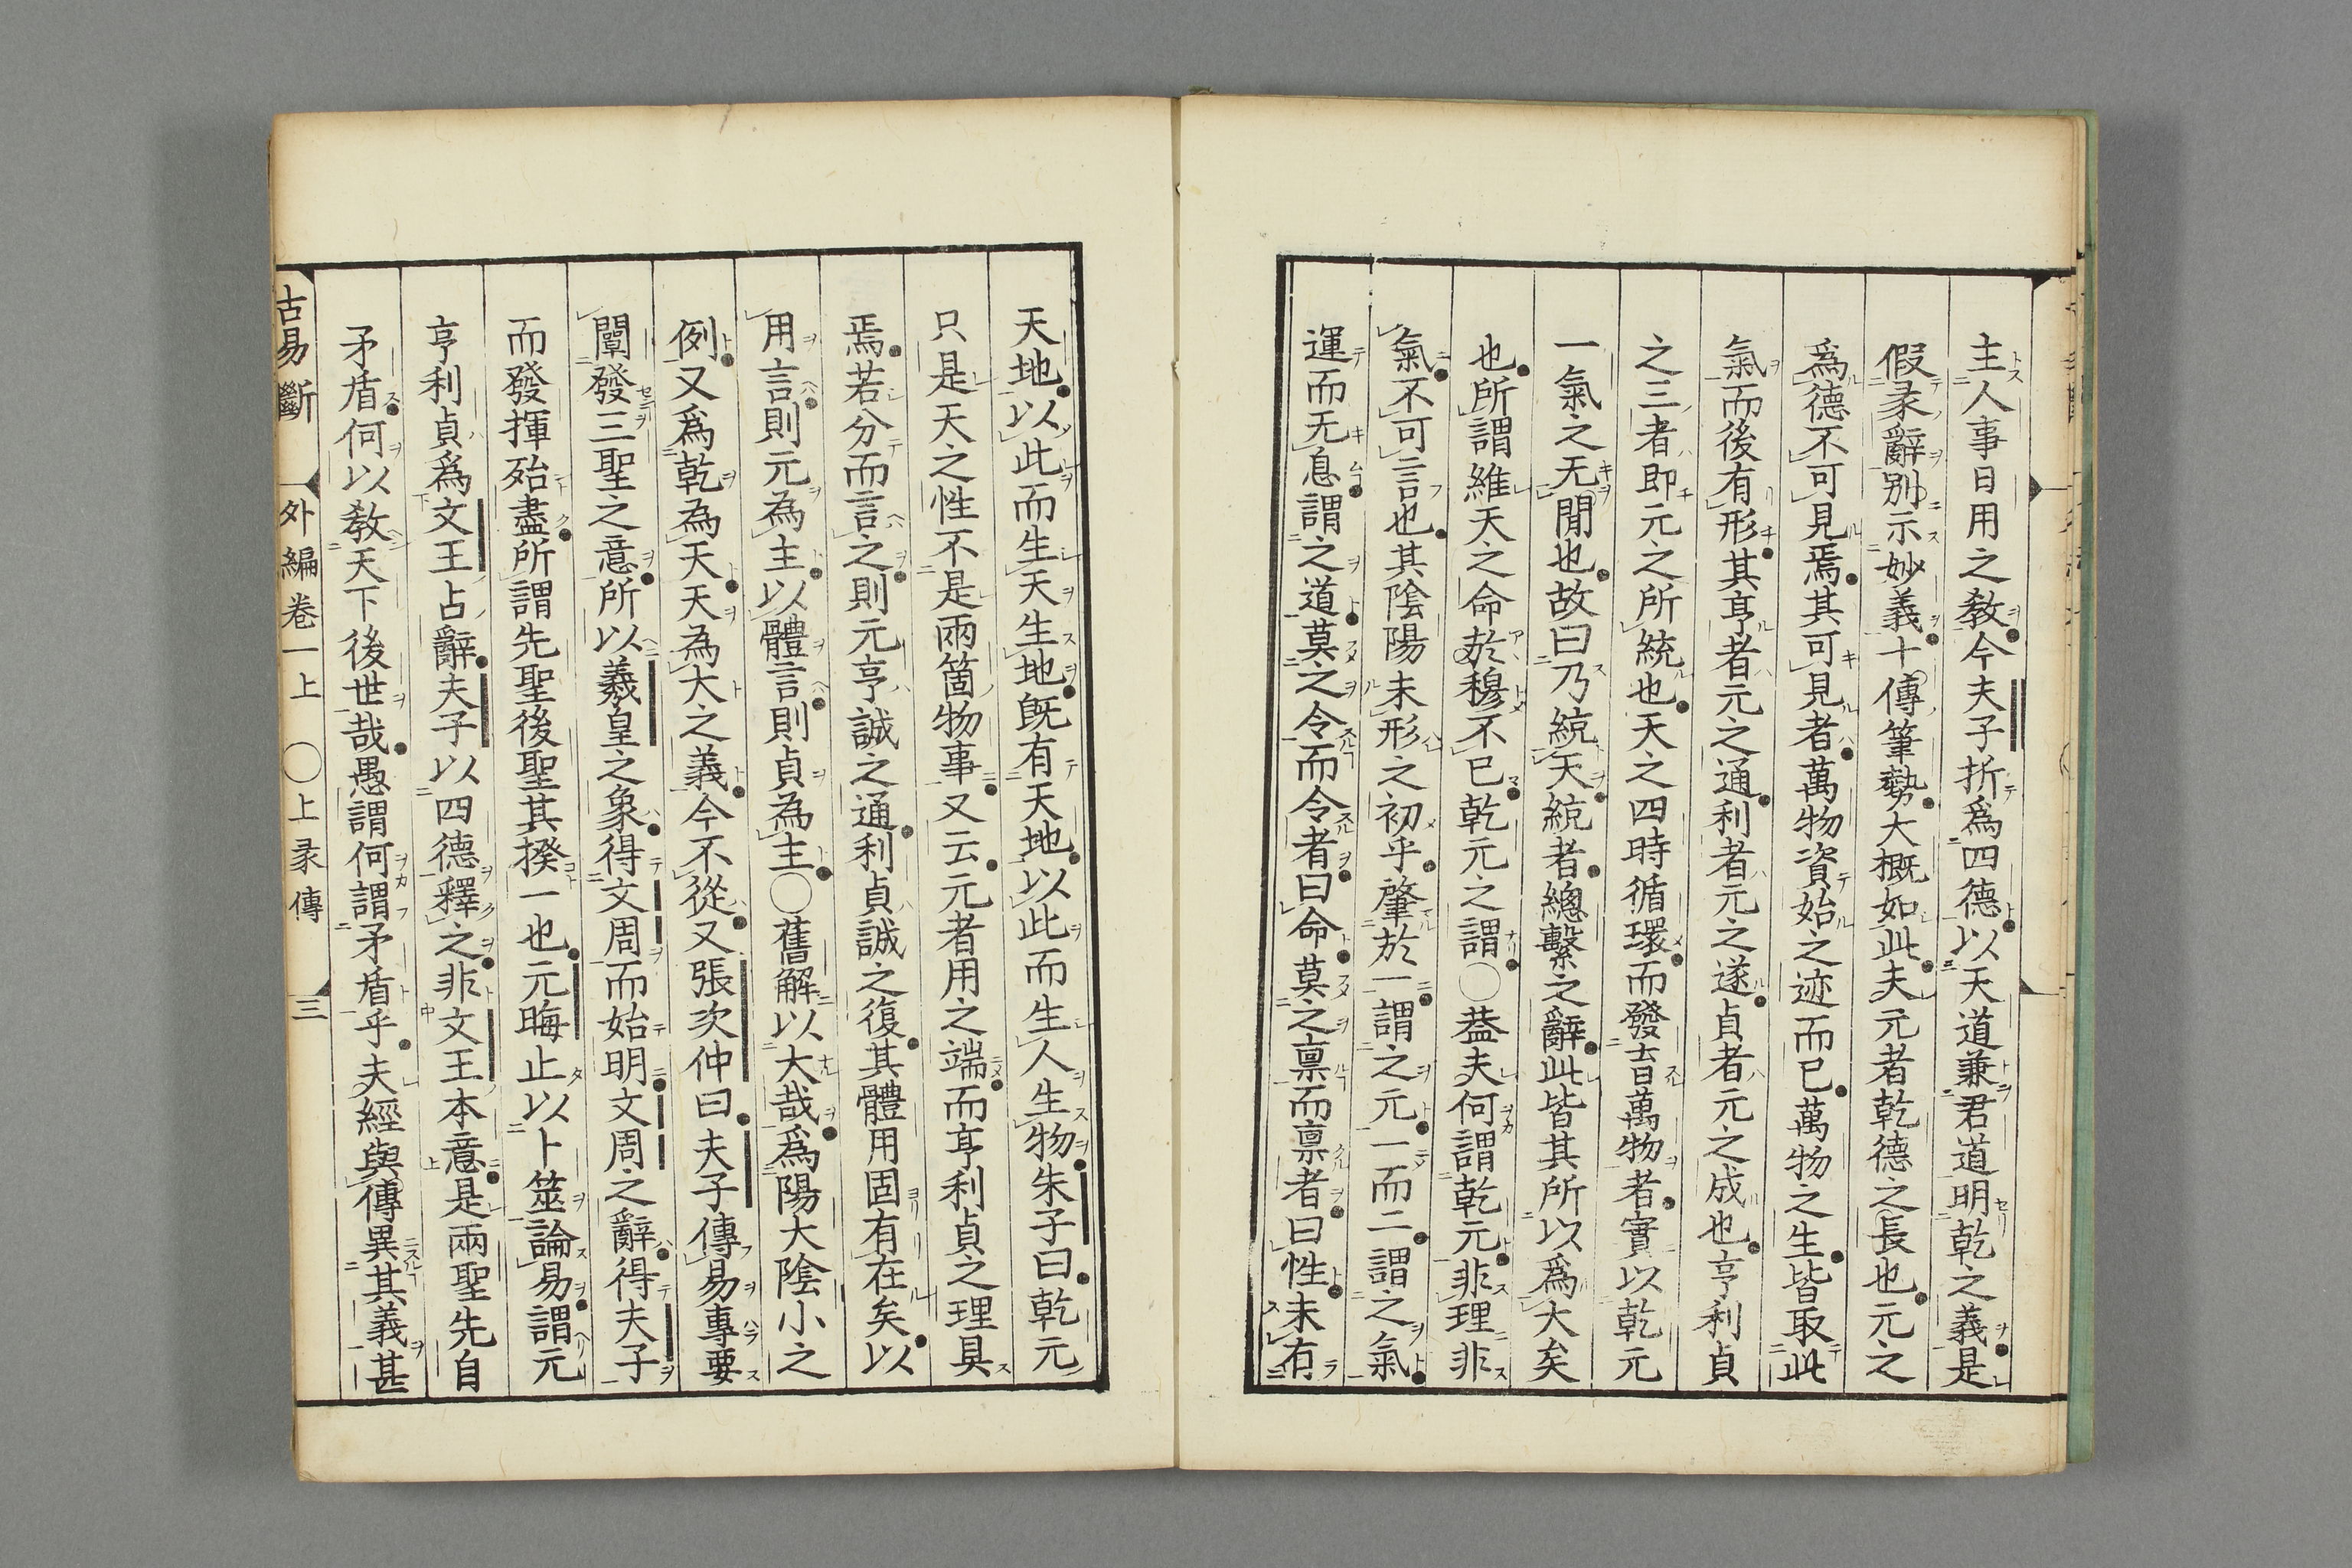 主人事日用之敎今夫子折爲四德以天道兼君道明乾之義是
假彖辭別示妙義十傳筆勢大概如此夫元者乾德之長也元之
爲德不可見焉其可見者萬物資始之迹而已萬物之生皆取此
氣而後有形其亨者元之通利者元之遂貞者元之成也亨利貞
之三者即元之所統也天之四時循環而發育萬物者實以乾元
一氣之无閒也故曰乃統天統者總繫之辭此皆其所以爲大矣
也所謂維天之命於穆不已乾元之謂○葢夫何謂乾元非理非
氣不可言也其陰陽未形之初乎肇於一謂之元一而二謂之氣
運而无息謂之道莫之令而令者曰命莫之禀而禀者曰性未有
天地以此而生天生地旣有天地以此而生人生物朱子曰乾元
只是天之性不是兩箇物事又云元者用之端而亨利貞之理具
焉若分而言之則元亨誠之通利貞誠之復其體用固有在矣以
用言則元為主以體言則貞為主○舊解以大哉爲陽大陰小之
例又爲乾為天天為大之義今不從又張次仲曰夫子傳易專要
闡發三聖之意所以羲皇之象得文周而始明文周之辭得夫子
而發揮殆盡所謂先聖後聖其揆一也元晦止以卜筮論易謂元
亨利貞爲文王占辭夫子以四德釋之非文王本意是兩聖先自
矛盾何以敎天下後世哉愚謂何謂矛盾乎夫經與傳異其義甚
古易斷 外編卷一上 ○上彖傳 三